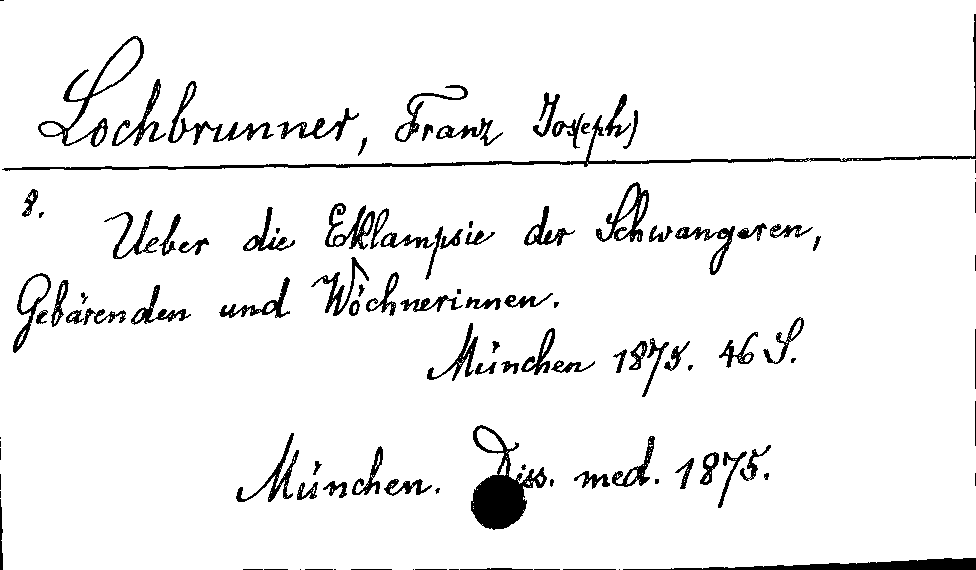 Lochbrunner, Franz Jos(eph)
8.
Ueber die Eklampsie der Schwangeren,
Gebärenden und Wöchnerinnen.
München 1875. 46 S.
München. Diss. med. 1875.